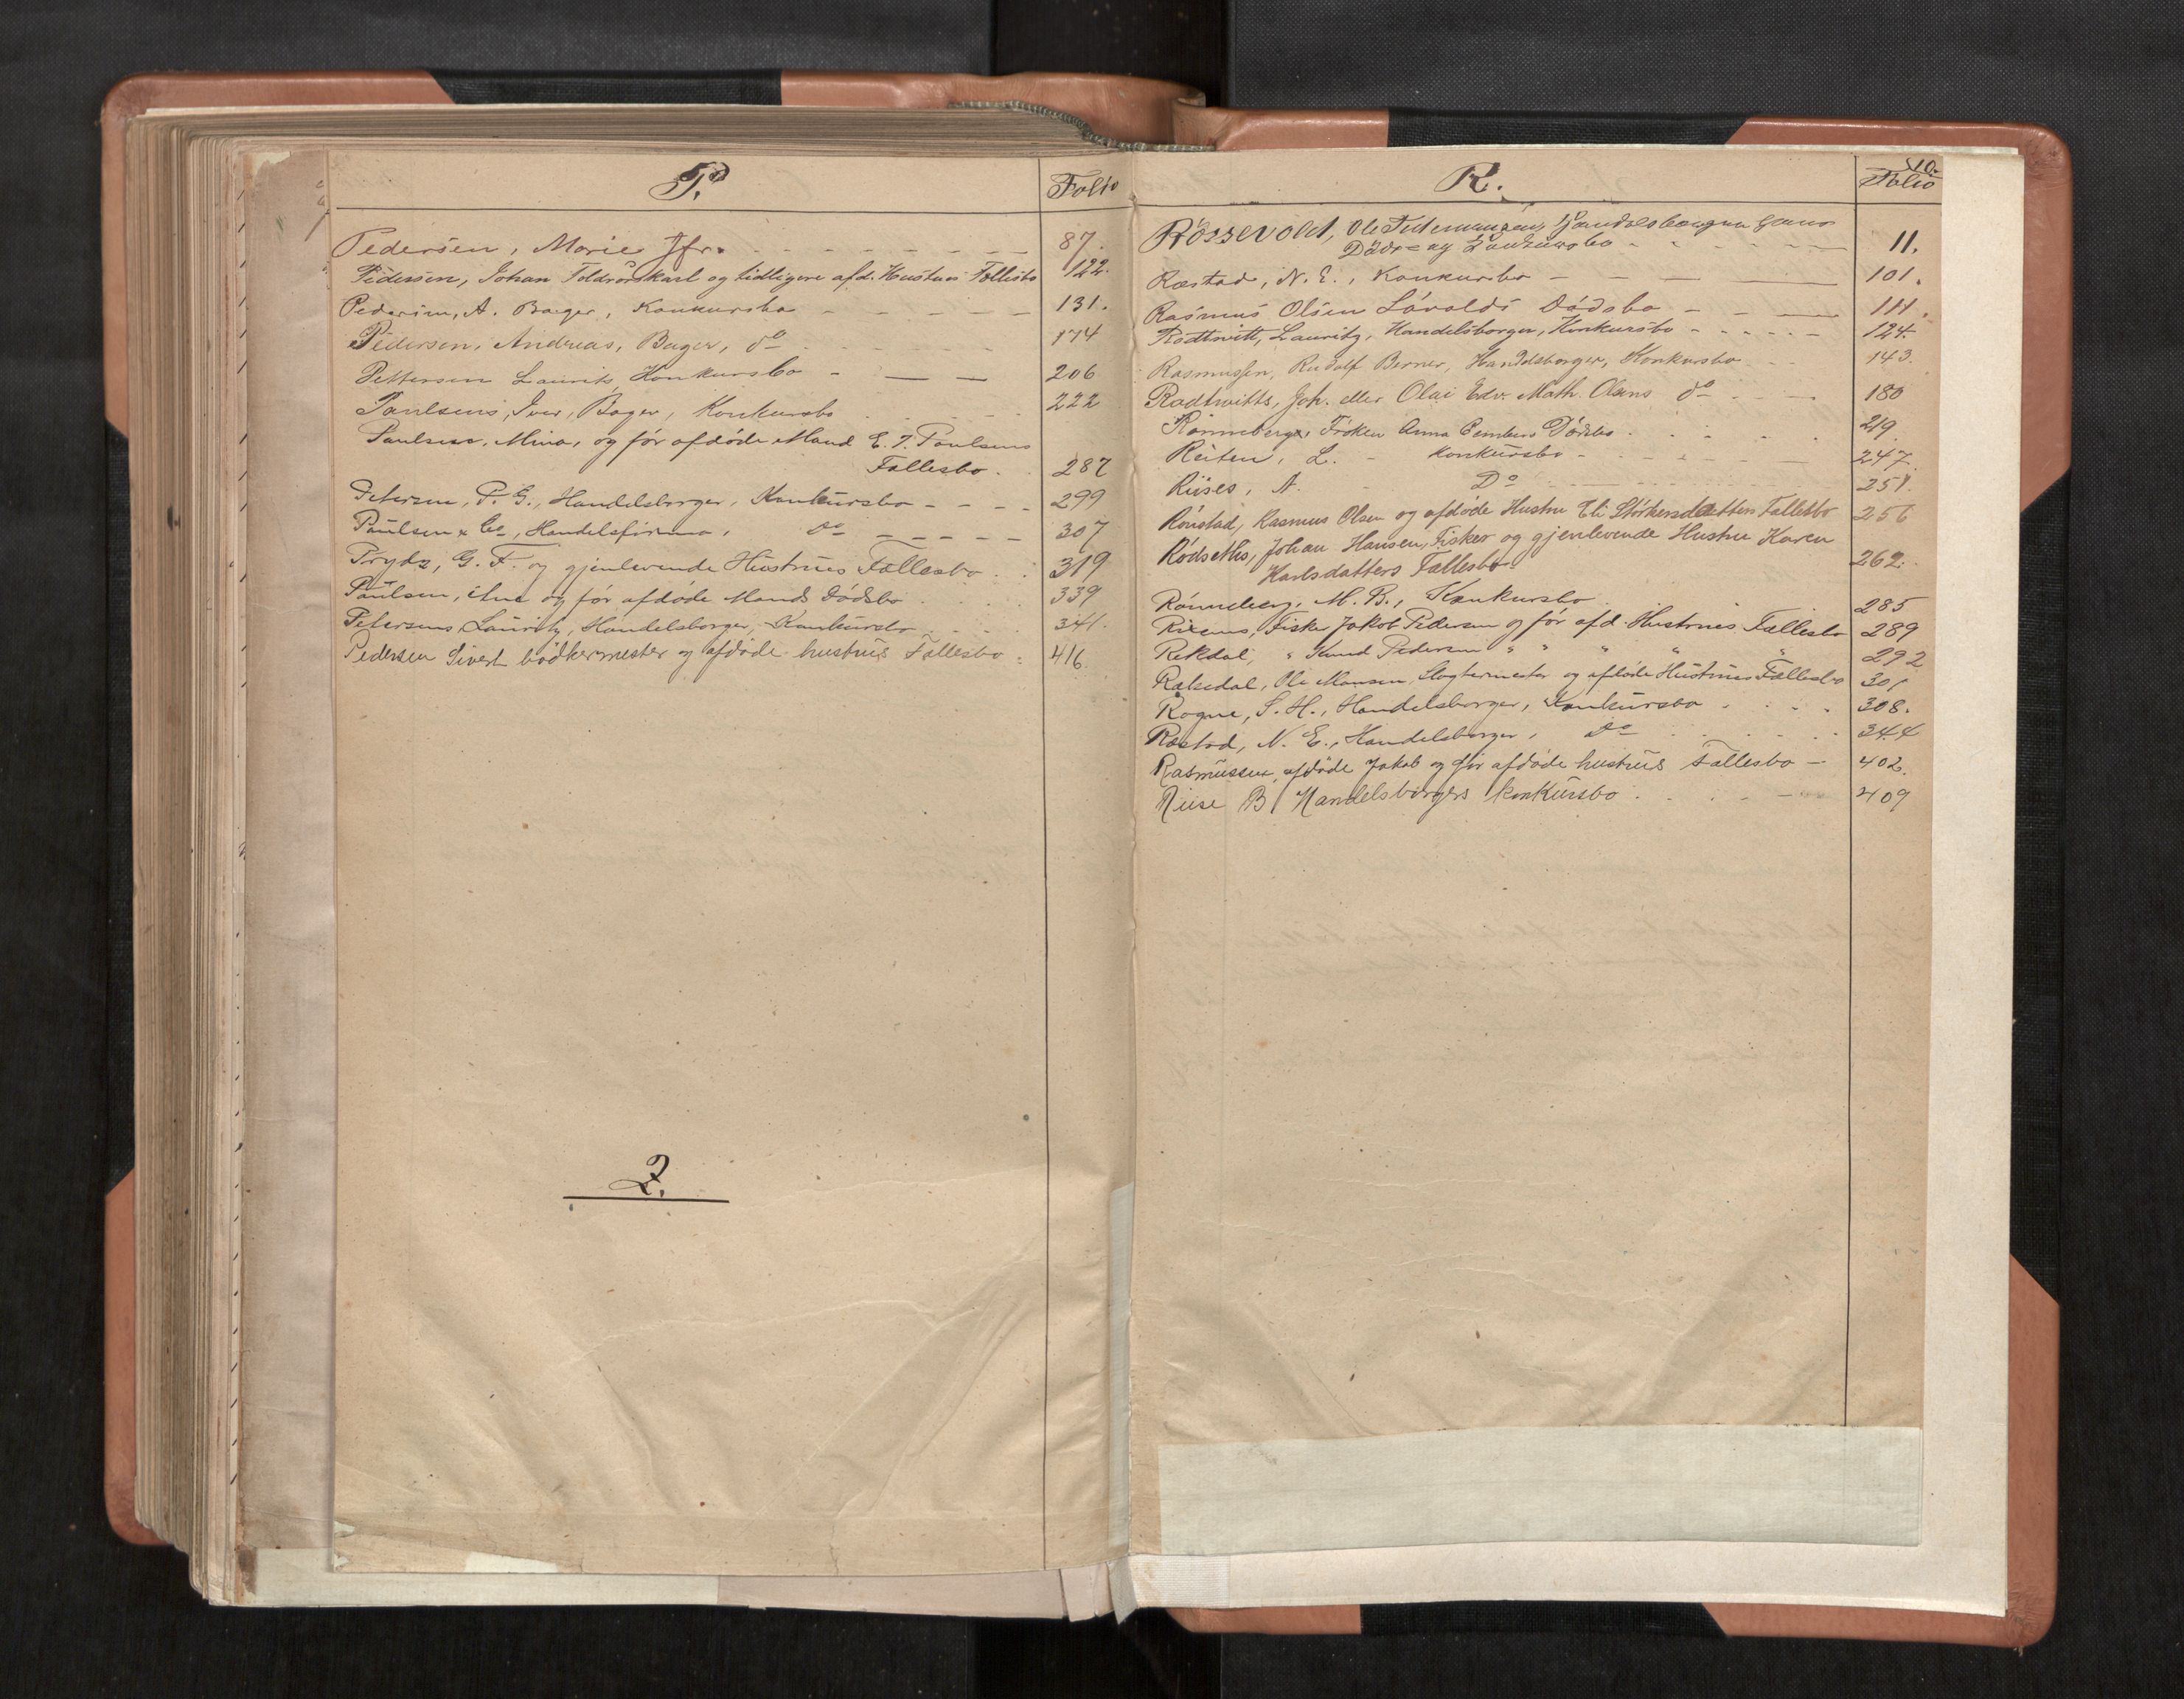 P.
Folio
Pedersen, Marie Jfr. 87.
Pedersen, Johan Toldrorskarl og tidligere afd. Hustrus Fællesbo 122.
Pedersen, A. Bager, Konkursbo 131.
Pedersen, Andreas, Bager, do 174
Pettersen Laurits, Konkursbo 206
Paulsens, Iver, Bager, Konkursbo 222
Paulsen, Mina, og før afdøde Mand E. T. Paulsens
Fællesbo. 287
Petersen, P. G., Handelsborger, Konkursbo 299
Paulsen & Co, Handelsfirma, do 307
Prydz, G. F. og gjenlevende Hustrues Fællesbo 319
Paulsen, Ane og før afdøde Mands Dødsbo 339
Petersens Lauritz, Handelsborger, Konkursbo 341.
Pedersen Sivert bødkermester og afdøde hustrus Fællesbo 416
Q.
R.
10.
Folio
Røssevold, Ole Handelsborger
Døds- og Konkursbo 11.
Ræstad, N. E., Konkursbo 101.
Rasmus Olsen Løvolds Dødsbo 111.
Rodtwitt, Lauritz, Handelsborger, Konkursbo 124.
Rasmussen, Rudolf Berner, Handelsborger, Konkursbo 143.
Rodtwitts, Joh. eller Olai Edv. Math. Olsens do 180
Rønneberg, Frøken Anna Dødsbo 219
Reiten, L. Konkursbo 247.
Riises, A. Do 251.
Rønstad, Rasmus Olsen og afdøde Hustru Eli Størkersdatters Fællesbo 256
Rødseths, Johan Hansen, Fisker og gjenlevende Hustru Karen
Karlsdatters Fællesbo 262.
Rønneberg, M. B., Konkursbo 285
Fisker Jakob Pedersen og før afd. Hustrues Fællesbo 289
Rekdal, " Knud Pedersen " " " " " 292
Rækedal, Ole Monsen, Slagtermester og afdøde Hustrues Fællesbo 301
Rogne, S. H., Handelsborger, Konkursbo 308.
Ræstad, N. E., Handelsborger, do 344
Rasmussen, afdøde Jakob og før afdøde hustrus Fællesbo 402.
Riise B Handelsborgers konkursbo 409